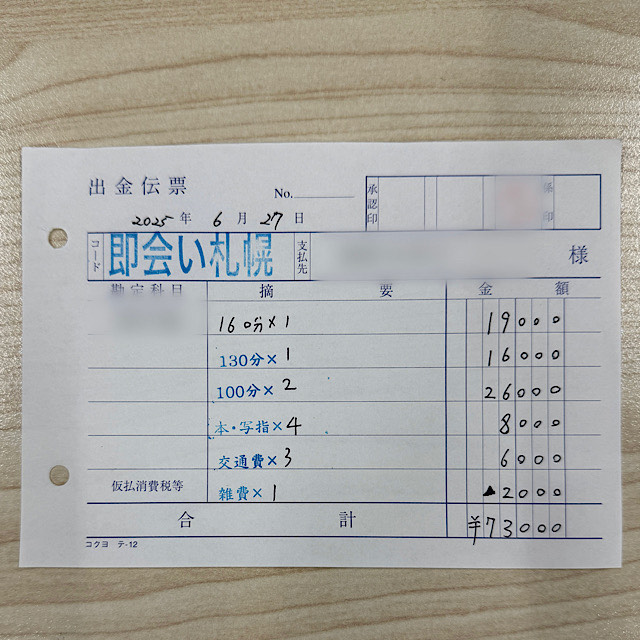 出金伝票 No.
承認印 係印
2025年6月27日
コード 即会い札幌 支払先 様
勘定科目 摘要 金額
160分×1 19000
130分×1 16000
100分×2 26000
本・写指×4 8000
交通費×3 6000
仮払消費税等 雑費×1 ▲2000
合計 ¥73000
コクヨ テ-12